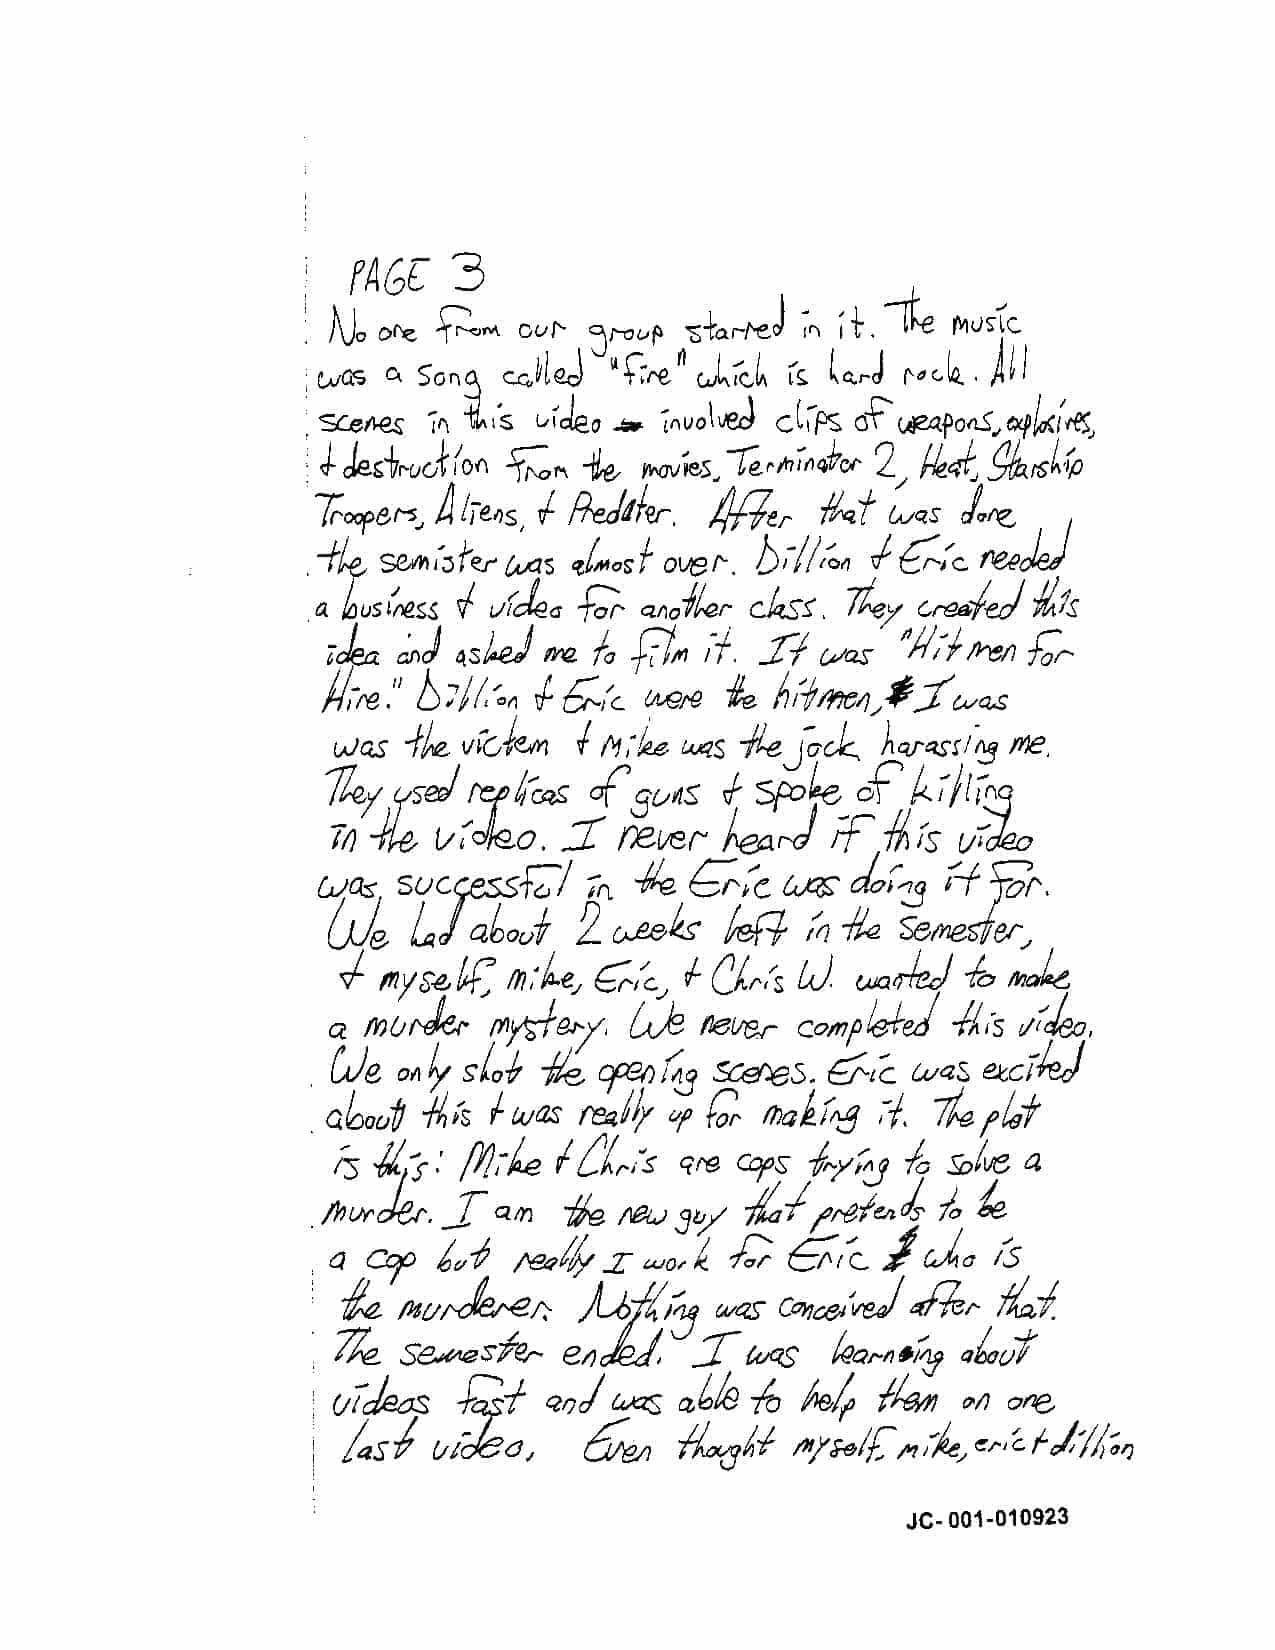 PAGE 3
No one from our group starred in it. The music
was a song called "Fire" which is hard rock. All
scenes in this video involved clips of weapons, explosives,
+ destruction from the movies, Terminator 2, Heat, Starship
Troopers, Aliens, + Predater. After that was done
the semister was almost over. Dillion + Eric needed
a business + video for another class. They created this
idea and asked me to film it. It was "Hit men for
Hire." Dillion + Eric were the hitmen, I was
was the victem + Mike was the jock harassing me.
They used replicas of guns + spoke of killing
in the video. I never heard if this video
was successful in the Eric was doing it for.
We had about 2 weeks left in the semester,
+ myself, mike, Eric, + Chris W. wanted to make
a murder mystery. We never completed this video.
We only shot the opening scenes. Eric was excited
about this + was really up for making it. The plot
is this: Mike + Chris are cops trying to solve a
murder. I am the new guy that pretends to be
a cop but really I work for Eric who is
the murderer. Nothing was conceived after that.
The semester ended. I was learning about
videos fast and was able to help them on one
last video, Even thought myself, mike, eric + dillion
JC- 001-010923